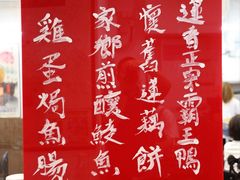 蓮香正宗霸王鴨
懷舊蓮藕餅
家鄉煎釀鯪魚
雞蛋焗魚腸